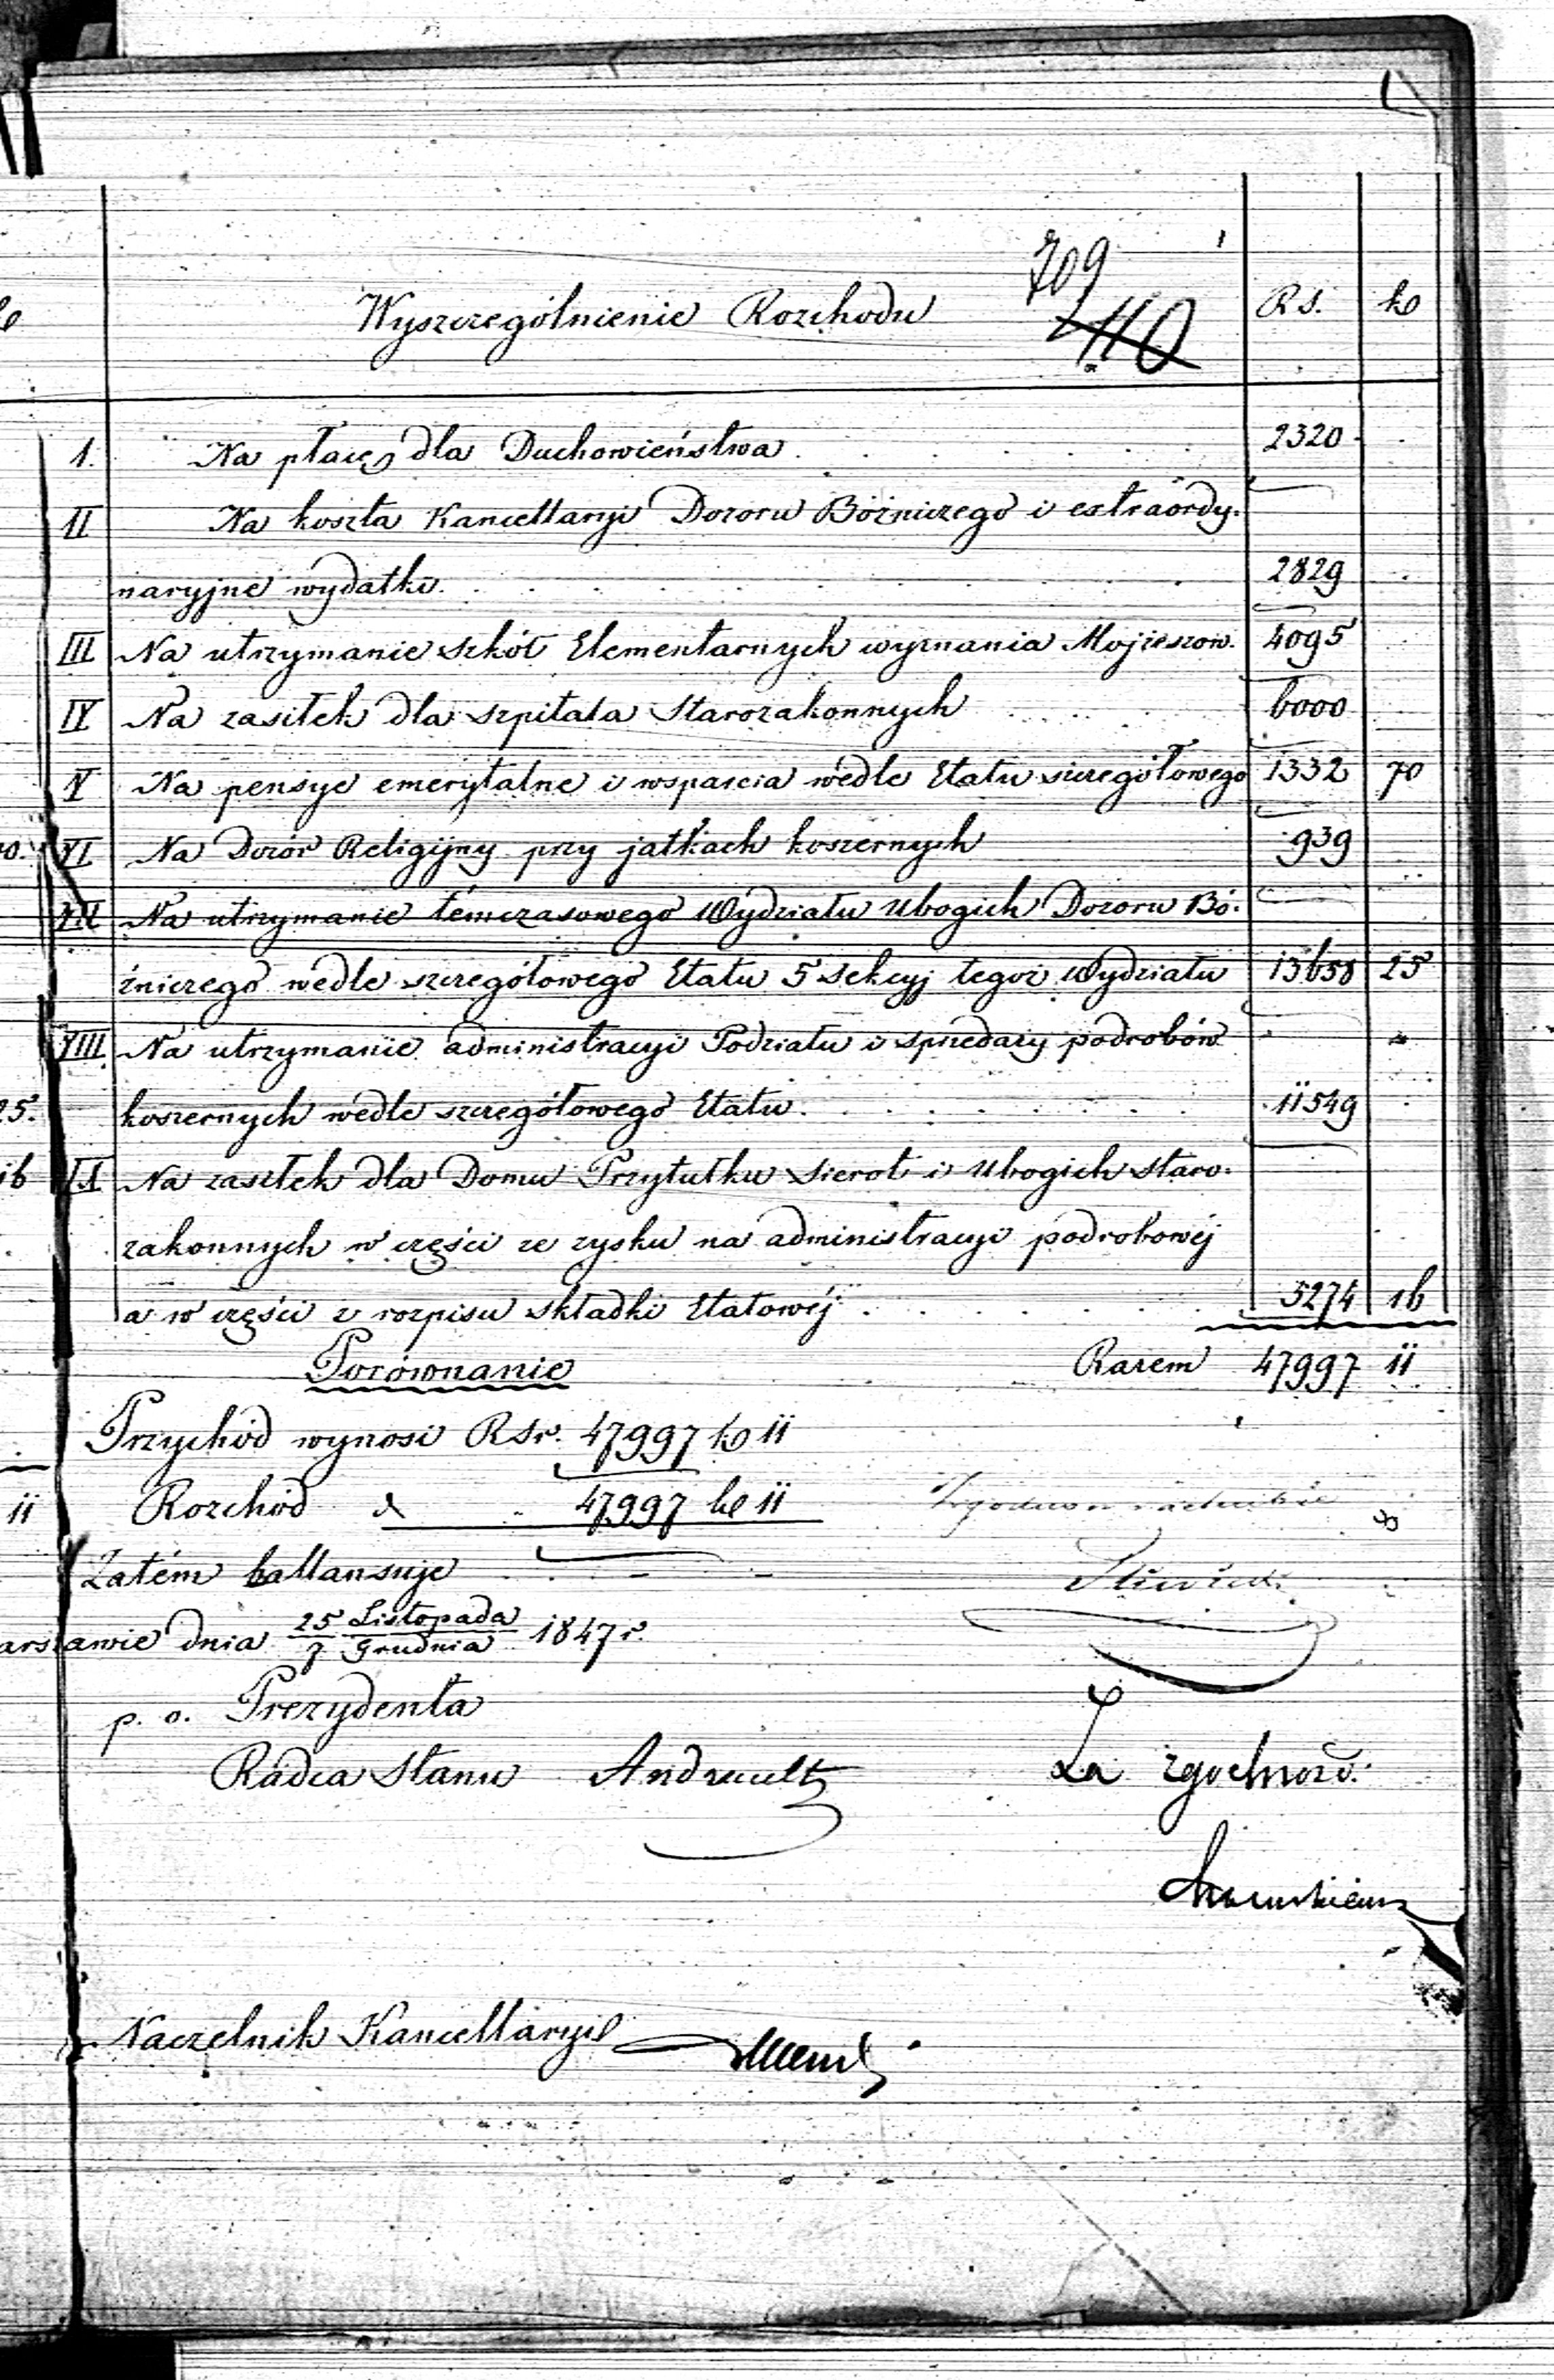 709
110
Wyszczególnienie Rozchodu Rs. ko
1. Na płacę dla Duchowieństwa 2320
II Na koszta Kancellaryi Dozoru Bóżniczego i extraordy-
naryjne wydatki 2829
III Na utrzymanie szkół Elementarnych wyznania Mojżeszow. 4095
IV Na zasiłek dla szpitala Starozakonnych 6000
V Na pensye emerytalne i wsparcia wedle Etatu szczegółowego 1332 70
VI Na Dozór Religijny przy jatkach koszernych 939
VII Na utrzymanie témczasowego Wydziału Ubogich Dozoru Bó-
żniczego wedle szczegółowego Etatu 5 Sekcyj tegoż Wydziału 13658 25
VIII Na utrzymanie administracyi Podziału i sprzedaży podrobów
koszernych wedle szczegółowego Etatu 11549
IX Na zasiłek dla Domu Przytułku Sierot i Ubogich Staro-
zakonnych w części ze zysku na administracyi podrobowéj
a w części z rozpisu składki Etatowéj 5274 16
Porównanie Razem 47997 11
Przychód wynosi RSr. 47997 ko 11
Rozchód 47997 ko 11
Zatém ballansuje
arszawie dnia 25 Listopada / 7 Grudnia 1847 r.
p. o. Prezydenta
Radca Stanu Andrault Za zgodność
Naczelnik Kancellaryi